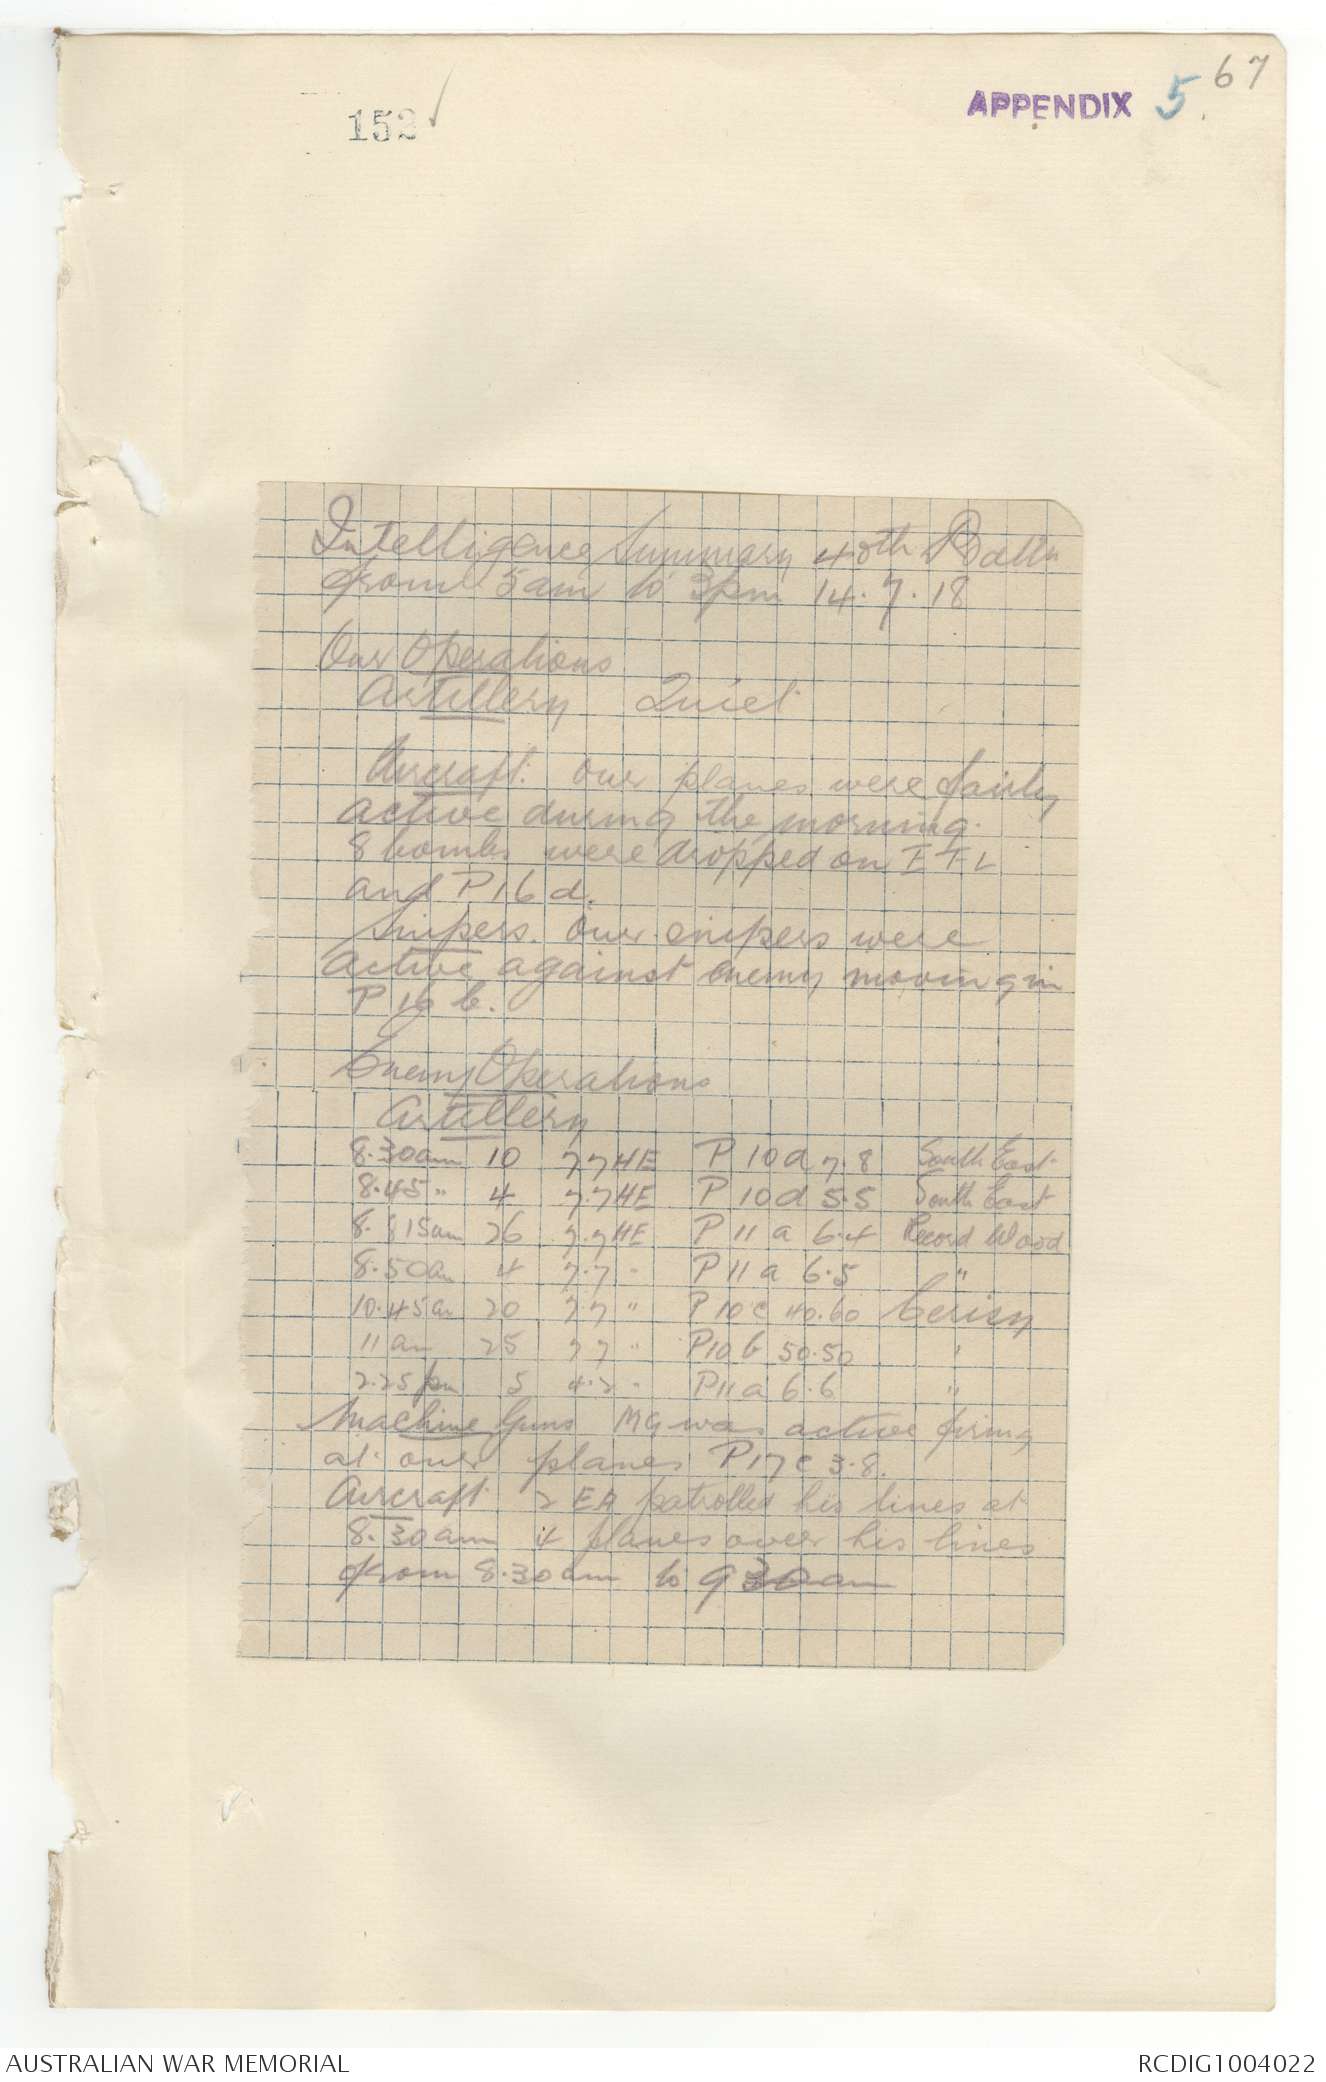 67
APPENDIX 5.
152 ✓
Intelligence Summary 40th Battn
from 5am to 3pm 14.7.18
Our Operations
Artillery Quiet
Aircraft. Our planes were fairly
active during the morning.
8 bombs were dropped on EFL
and P16d.
Snipers. Our snipers were
active against enemy moving in
P16b.
Enemy Operations
Artillery
8.30am 10 77HE P10d 7.8 South East
8.45 " 4 7.7HE P10d 5.5 South East
8.815am 26 7.7HE P11a 6.4 Record Wood
8.50am 4 7.7 " P11a 6.5 "
10.45am 20 77 " P10c 40.60 Cerisy
11am 25 77 " P10b 50.50 "
2.25pm 5 4.2 " P11a 6.6 "
Machine Guns MG was active firing
at our planes P17c 3.8.
Aircraft 2 EA patrolled his lines at
8.30am 4 planes over his lines
from 8.30am to 930am
AUSTRALIAN WAR MEMORIAL
RCDIG1004022